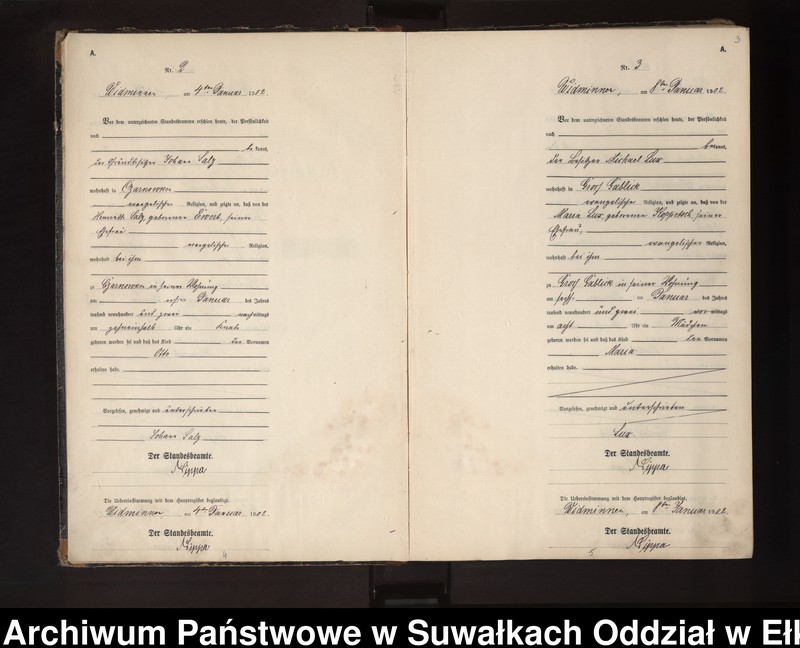 A.
Nr. 2
Widminnen, am 4ten Januar 1902.
Vor dem unterzeichneten Standesbeamten erschien heute, der Persönlichkeit
nach
be kannt,
der Grundbesitzer Johann Salz
wohnhaft in Czarnowken
evangelischer Religion, und zeigte an, daß von der
Henriette Salz, geborenen, seiner
Ehefrau
evangelischer Religion,
wohnhaft bei ihm
zu Czarnowken in seiner Wohnung
am ersten Januar des Jahres
tausend neunhundert und zwei nachmittags
um Uhr ein Knabe
geboren worden sei und daß das Kind den Vornamen
Otto
erhalten habe.
Vorgelesen, genehmigt und unterschrieben
Johann Salz
Der Standesbeamte.
Nippa
Die Uebereinstimmung mit dem Hauptregister beglaubigt.
Widminnen am 4ten Januar 1902.
Der Standesbeamte.
Nippa
4
3
A.
Nr. 3
Widminnen, am 8ten Januar 1902.
Vor dem unterzeichneten Standesbeamten erschien heute, der Persönlichkeit
nach
bekannt,
der Besitzer Michael Lux
wohnhaft in Groß Gablick
evangelischer Religion, und zeigte an, daß von der
Maria Lux, geborenen, seiner
Ehefrau,
evangelischer Religion,
wohnhaft bei ihm
zu Groß Gablick in seiner Wohnung
am Januar des Jahres
tausend neunhundert und zwei vormittags
um acht Uhr ein Mädchen
geboren worden sei und daß das Kind den Vornamen
Maria
erhalten habe.
Vorgelesen, genehmigt und unterschrieben
Lux
Der Standesbeamte.
Nippa
Die Uebereinstimmung mit dem Hauptregister beglaubigt.
Widminnen, am 8ten Januar 1902.
Der Standesbeamte.
Nippa
5
Archiwum Państwowe w Suwałkach Oddział w Ełk